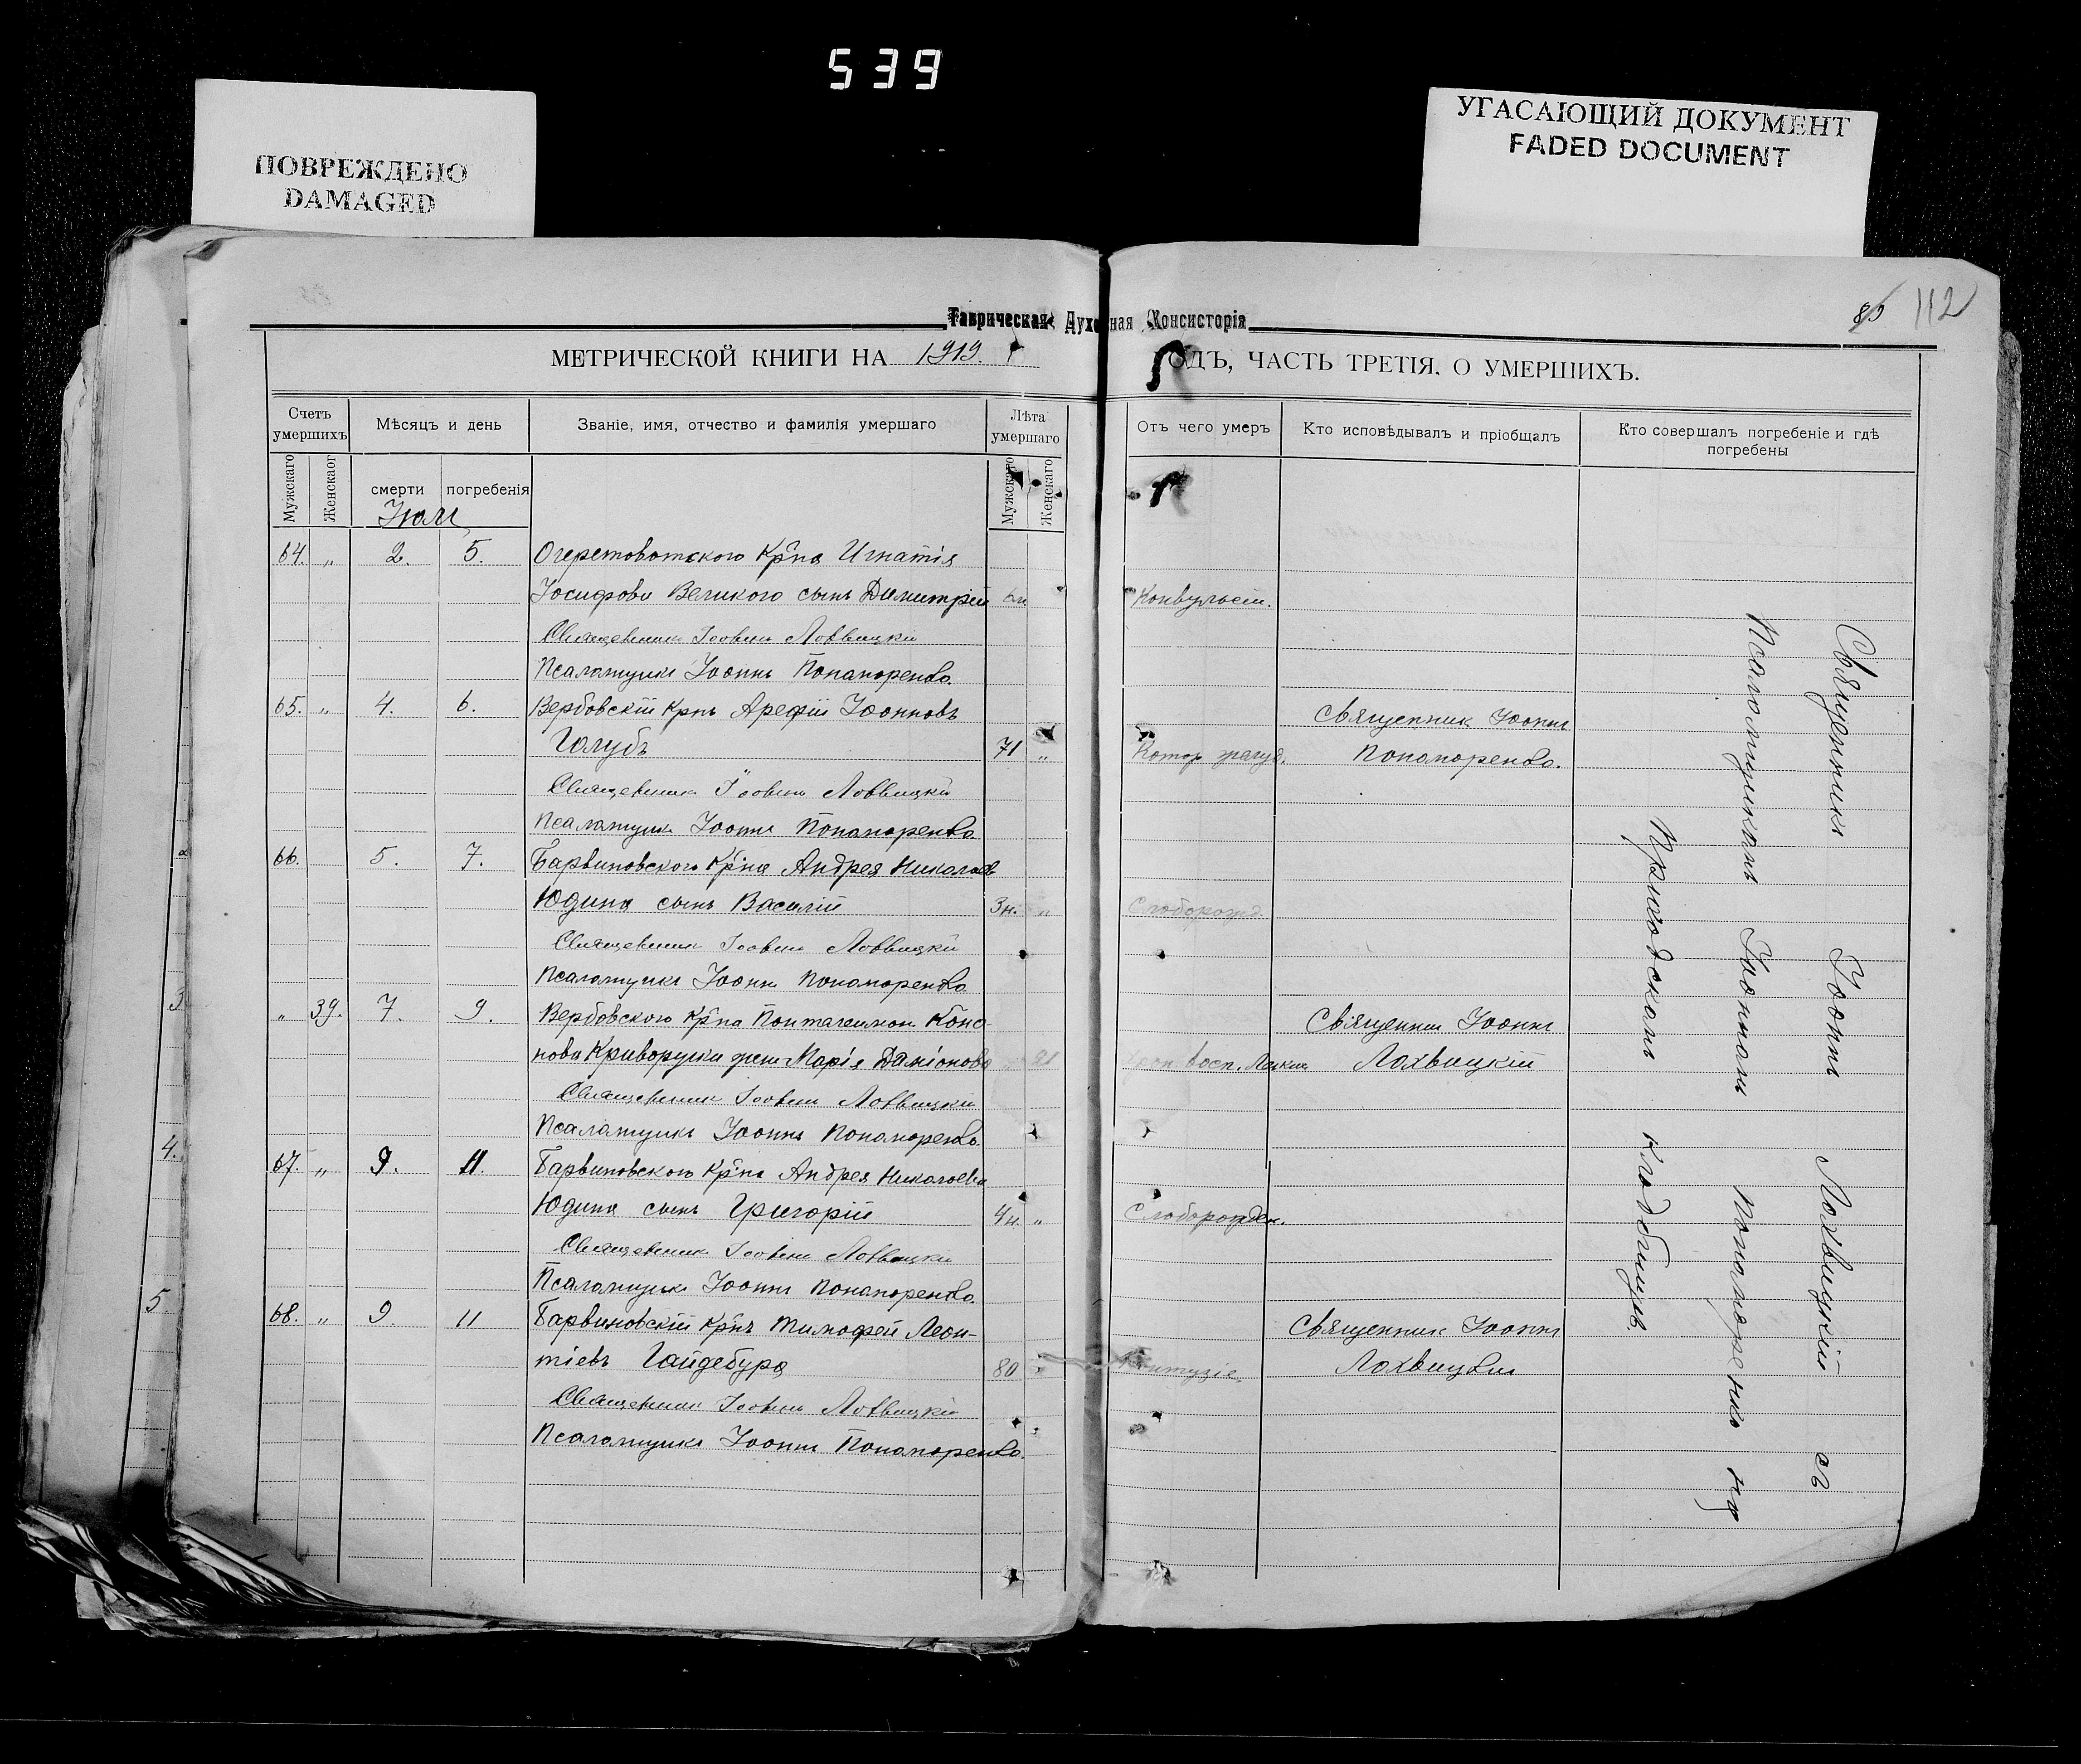 539
ПОВРЕЖДЕНО
DAMAGED
УГАСАЮЩИЙ ДОКУМЕНТ
FADED DOCUMENT
Таврическая Духовная Консисторія
85 112
МЕТРИЧЕСКОЙ КНИГИ НА 1919 ГОДЪ, ЧАСТЬ ТРЕТІЯ. О УМЕРШИХЪ.
Счетъ умершихъ
Мѣсяцъ и день
Званіе, имя, отчество и фамилія умершаго
Лѣта умершаго
Отъ чего умеръ
Кто исповѣдывалъ и пріобщалъ
Кто совершалъ погребеніе и гдѣ погребены
Мужскаго
Женскаог
смерти
погребенія
Мужскаго
Женскаго
64. „ 2. 5. Огеретоватского Крна Игнатія
Іосифова Великого сынъ Димитрій Конвульсіи.
Священникъ Іоаннъ Лохвицкій
Псаломщикъ Іоаннъ Пономаренко.
65. „ 4. 6. Вербовскій Крнъ Арефій Іоанновъ Священникъ Іоаннъ
Голубъ 71 „ Пономаренко.
Священникъ Іоаннъ Лохвицкій
Псаломщикъ Іоаннъ Пономаренко
66. 5. 7. Барвиновского Крна Андрея Николаев
Юдина сынъ Василій 3н. „ Слаборожд.
Священникъ Іоаннъ Лохвицкій
Псаломщикъ Іоаннъ Пономаренко
„ 39. 7. 9. Вербовского Крна Пантелеимон Коно-
нова Криворучки жена Марія Даміонова восп. Легких Священник Іоаннъ
Лохвицкій
Священникъ Іоаннъ Лохвицкій
Псаломщикъ Іоаннъ Пономаренко.
67. „ 9. 11. Барвиновского Крна Андрея Николаева
Юдина сынъ Григорій 4н. „ Слаборожден.
Священникъ Іоаннъ Лохвицкій
Псаломщикъ Іоаннъ Пономаренко.
68. „ 9. 11 Барвиновскій Крнъ Тимофей Леон- Священникъ Іоаннъ
тіевъ Гайдебура 80 Лохвицкій
Священникъ Іоаннъ Лохвицкій
Псаломщикъ Іоаннъ Пономаренко.
Священникъ Іоаннъ Лохвицкій съ
Псаломщикомъ Іоанномъ Пономаренко на
Приходскомъ кладбищѣ.
3
4.
5.